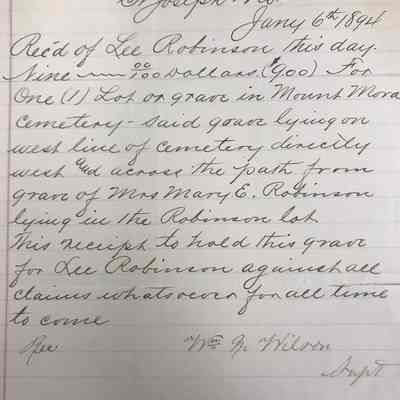 St Joseph Mo.
Jany 6th 1894
Rec'd of Lee Robinson this day
Nine 00/100 Dollars ($9.00) For
One (1) Lot or grave in Mount Mora
Cemetery - said grave lying on
west line of cemetery directly
west and across the path from
grave of Mrs Mary E. Robinson
lying in the Robinson lot
This reciept to hold this grave
for Lee Robinson against all
claims whatsoever for all time
to come
Rec Wm N Wilson
Supt